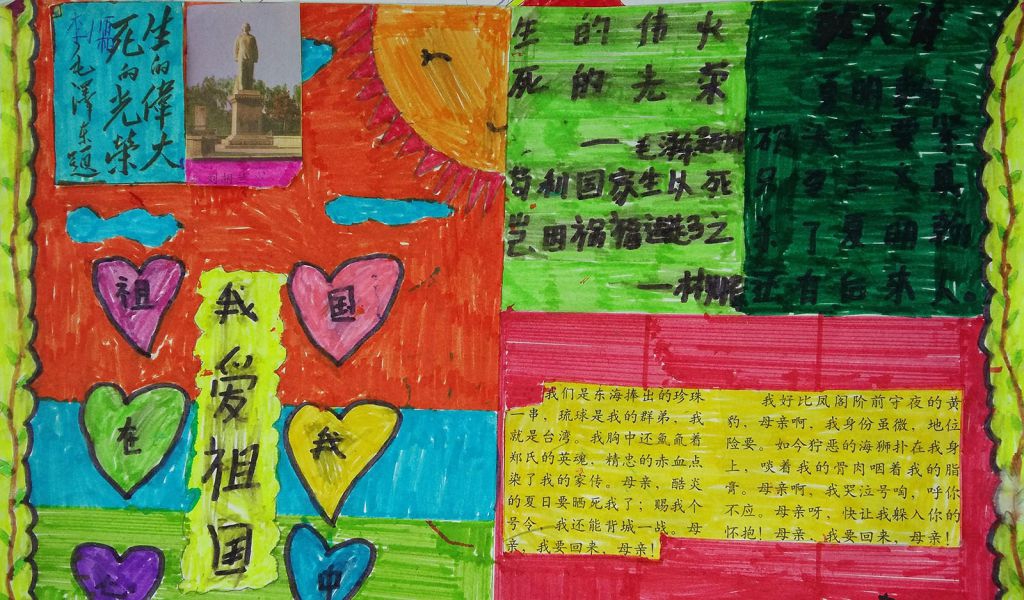 生的偉大
死的光榮
毛澤东題
我爱祖国
祖
国
在
我
心
中
生的伟火
死的光荣
苟利国家生从死
岂因祸福避趋之
就义诗
夏明翰
砍头不要紧
只要主义真
杀了夏明翰
还有后来人。
我们是东海捧出的珍珠
一串，琉球是我的群弟，我
就是台湾。我胸中还氤氲着
郑氏的英魂，精忠的赤血点
染了我的家传。母亲，酷炎
的夏日要晒死我了；赐我个
号令，我还能背城一战。母
亲，我要回来，母亲！
我好比凤阁阶前守夜的黄
豹，母亲啊，我身份虽微，地位
险要。如今狞恶的海狮扑在我身
上，啖着我的骨肉咽着我的脂
膏。母亲啊，我哭泣号啕，呼你
不应。母亲呀，快让我躲入你的
怀抱！母亲，我要回来，母亲！